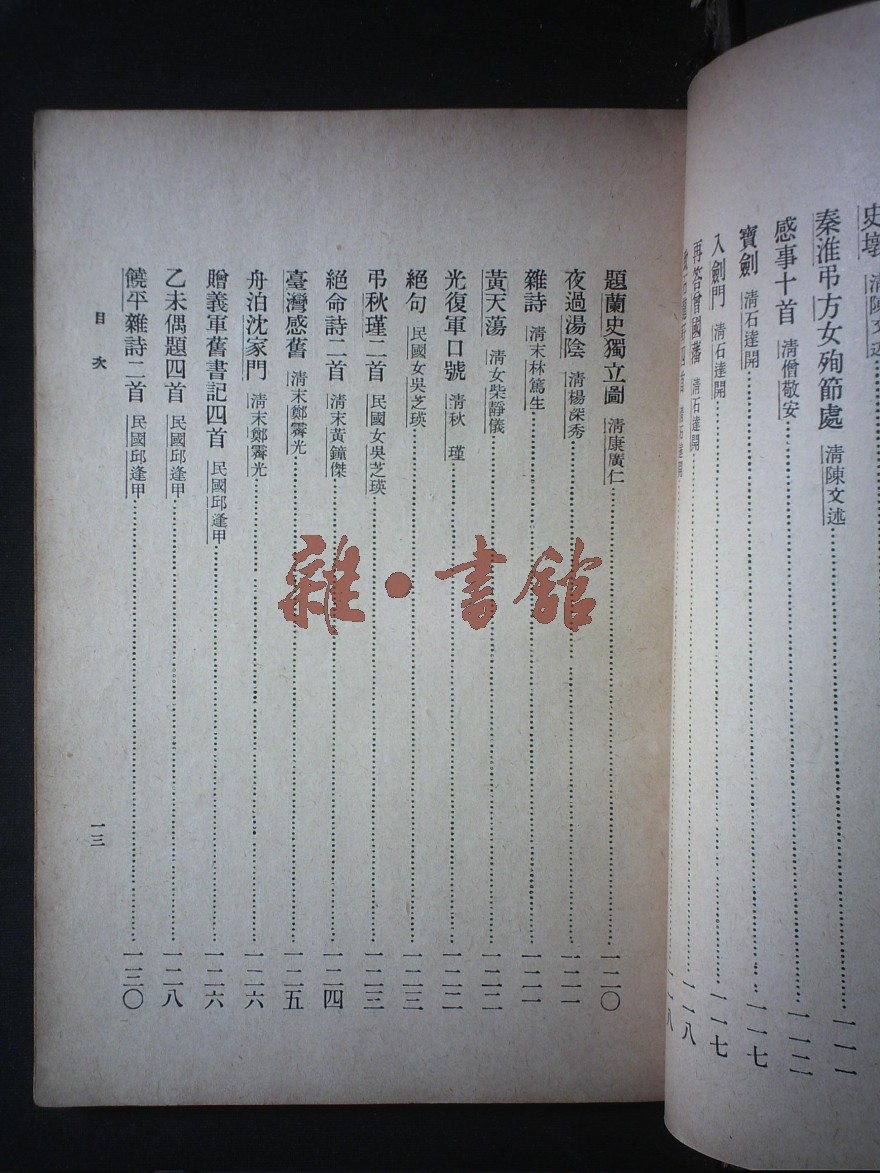 史墩 清陳文述
秦淮弔方女殉節處 清陳文述……一一一
感事十首 清僧敬安……一一二
寶劍 清石達開……一一七
入劍門 清石達開……一一七
再答曾國藩 清石達開……一一八
清石達開……一一八
題蘭史獨立圖 清康廣仁……一二〇
夜過湯陰 清楊深秀……一二一
雜詩 清末林篤生……一二一
黃天蕩 清女柴靜儀……一二二
光復軍口號 清秋瑾……一二二
絕句 民國女吳芝瑛……一二三
弔秋瑾二首 民國女吳芝瑛……一二三
絕命詩二首 清末黃鐘傑……一二四
臺灣感舊 清末鄭霽光……一二五
舟泊沈家門 清末鄭霽光……一二六
贈義軍舊書記四首 民國邱逢甲……一二六
乙未偶題四首 民國邱逢甲……一二八
饒平雜詩二首 民國邱逢甲……一三〇
目次
一三
雜·書館